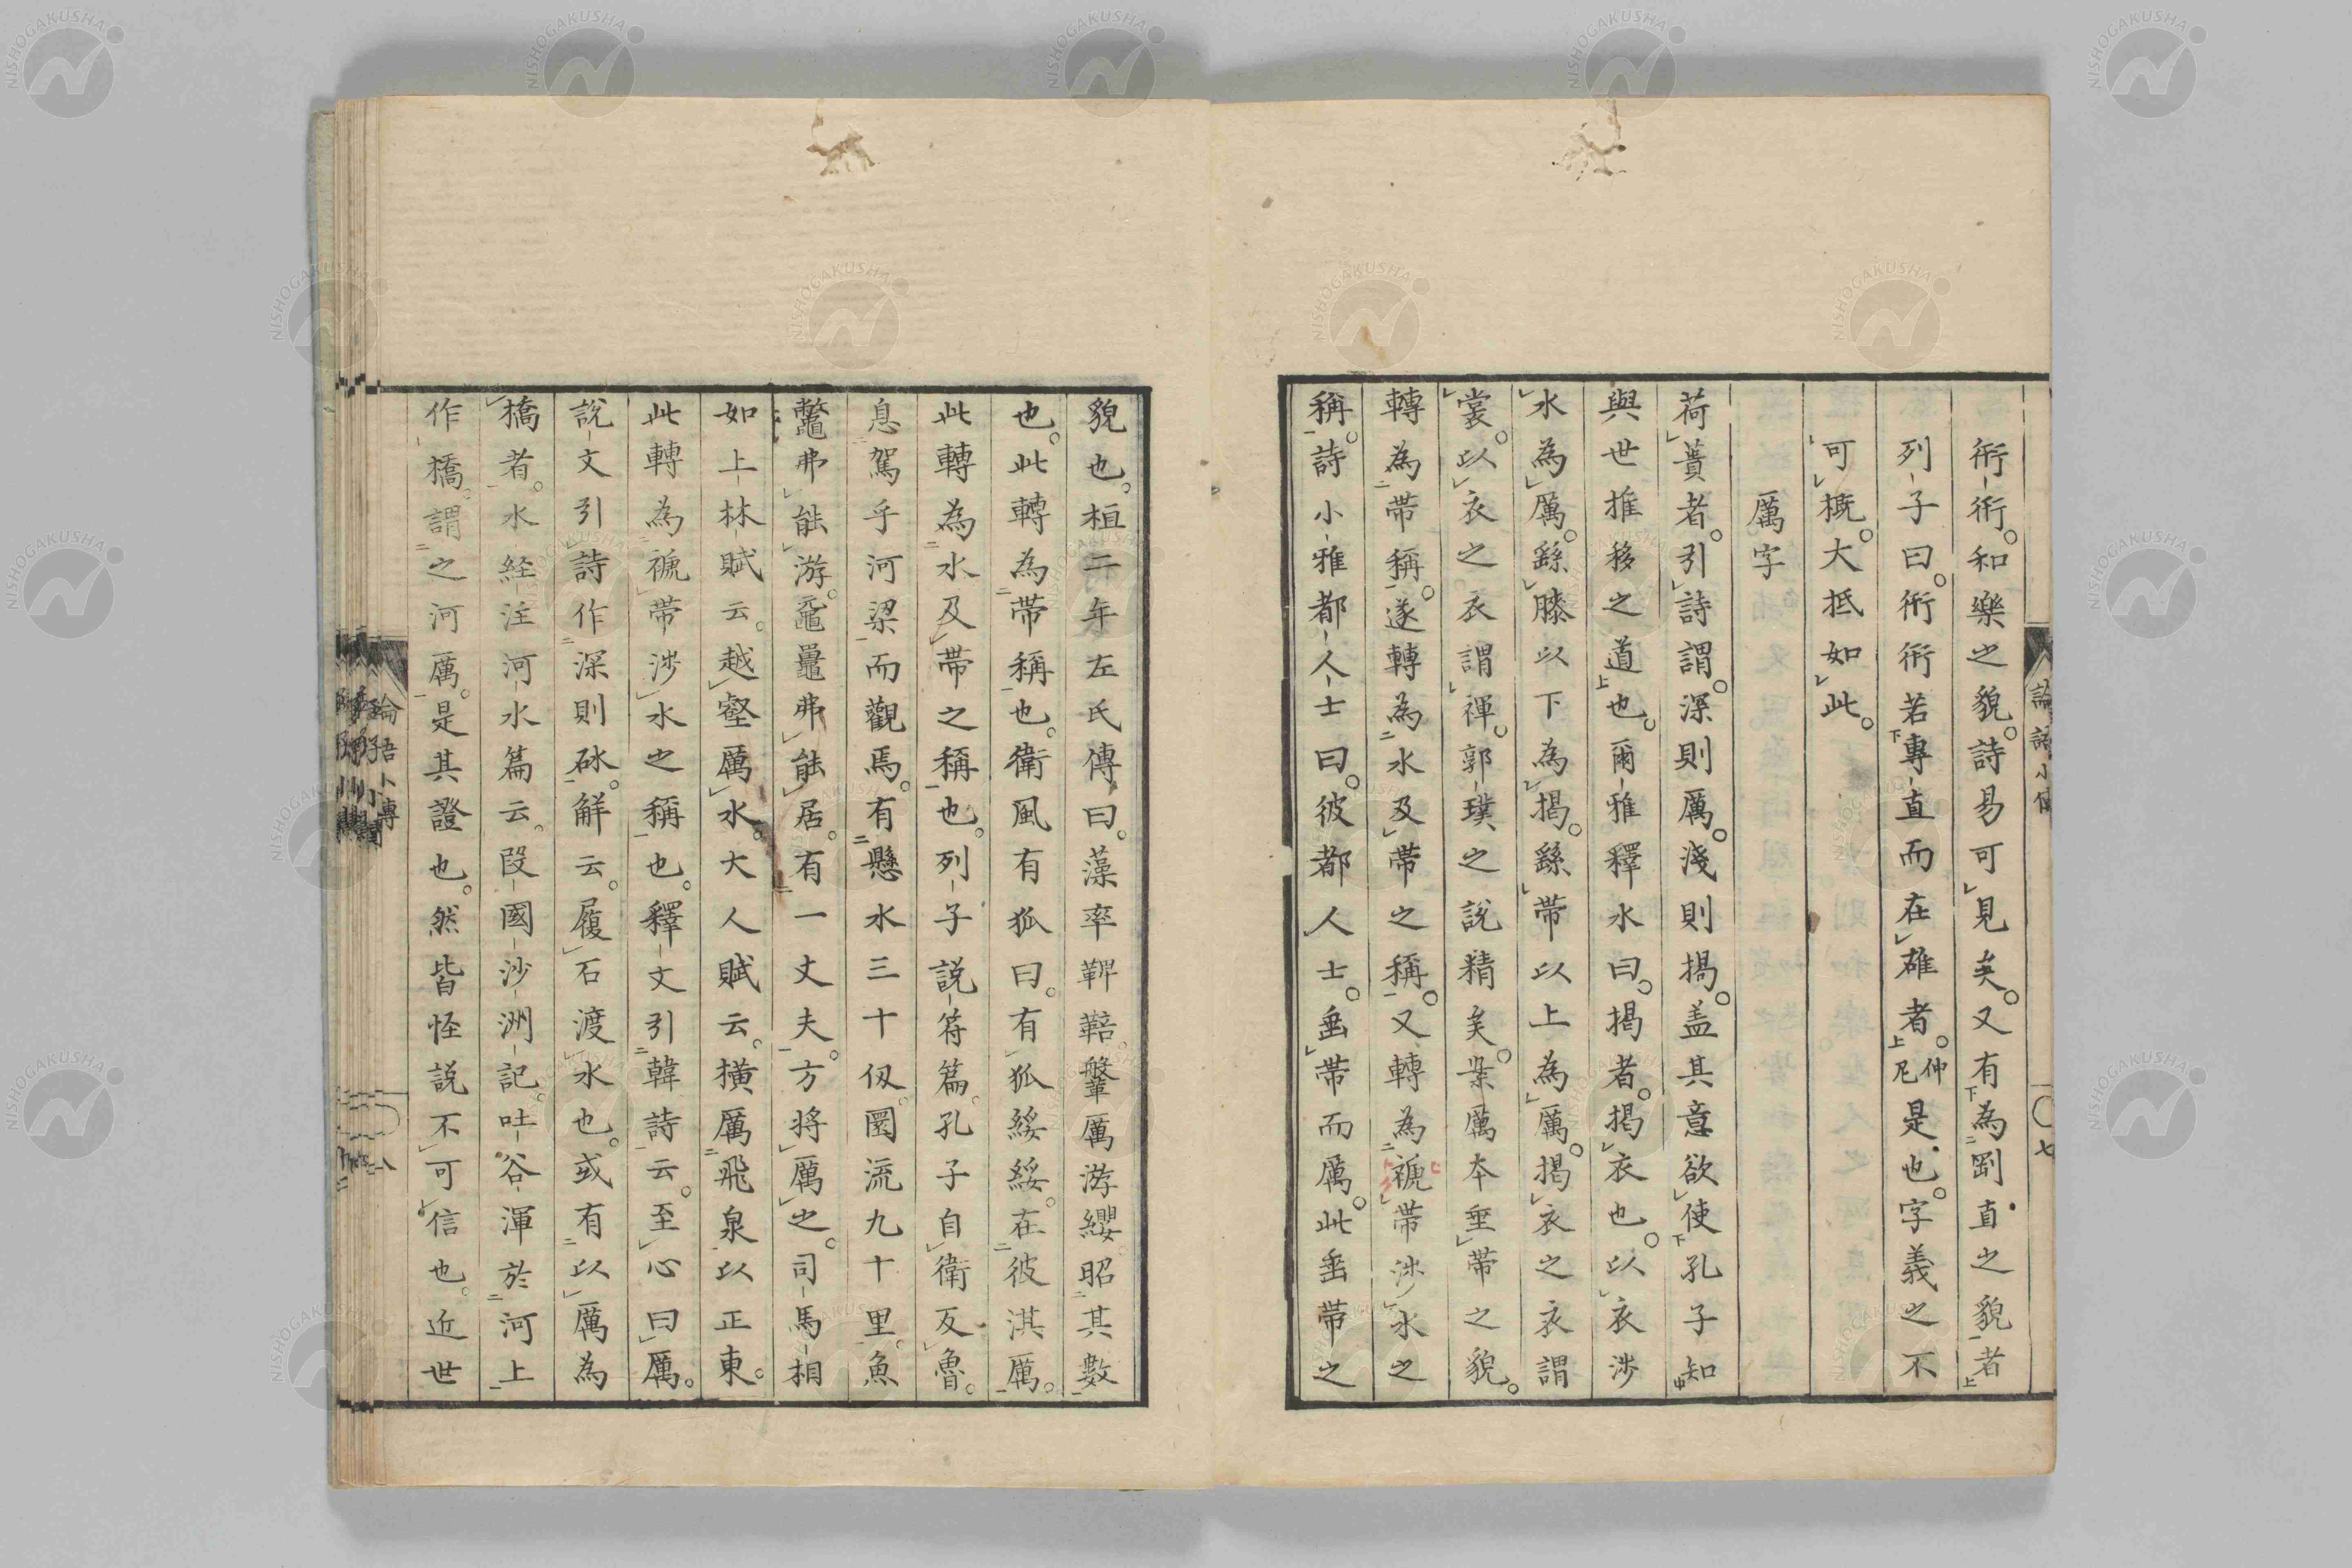 衎衎。和樂之貌。詩易可見矣。又有為剛直之貌者
列子曰。衎衎若專直而在雄者。仲尼是也。字義之不
可概。大抵如此。
厲字
荷蕢者。引詩謂。深則厲。淺則揭。盖其意欲使孔子知
與世推移之道也。爾雅釋水曰。揭者。揭衣也。以衣涉
水為厲。繇膝以下為揭。繇帶以上為厲。揭衣之衣謂
裳。以衣之衣謂褌。郭璞之說精矣。枲厲本垂帶之貌。
轉為帶稱。遂轉為水及帶之稱。又轉為褫帶涉水之
稱。詩小雅都人士曰。彼都人士。垂帶而厲。此垂帶之
貌也。桓二年左氏傳曰。藻率鞞鞛。鞶厲游纓。昭其數
也。此轉為帶稱也。衛風有狐曰。有狐綏綏。在彼淇厲。
此轉為水及帶之稱也。列子說符篇。孔子自衛反魯。
息駕乎河梁而觀焉。有懸水三十仭。圜流九十里。魚
鼈弗能游。黿鼉弗能居。有一丈夫。方将厲之。司馬相
如上林賦云。越壑厲水。大人賦云。橫厲飛泉以正東。
此轉為褫帶涉水之稱也。釋文引韓詩云。至心曰厲。
說文引詩作深則砅。解云。履石渡水也。或有以厲為
橋者。水経注河水篇云。段國沙洲記。吐谷渾於河上
作橋。謂之河厲。是其證也。然皆怪説不可信也。近世
論語小傳
一〇七